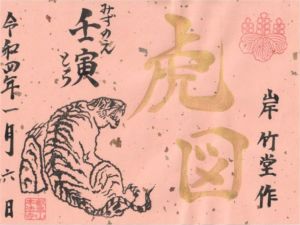 岸竹堂作
虎図
みずのえ
壬寅
とら
令和四年一月六日